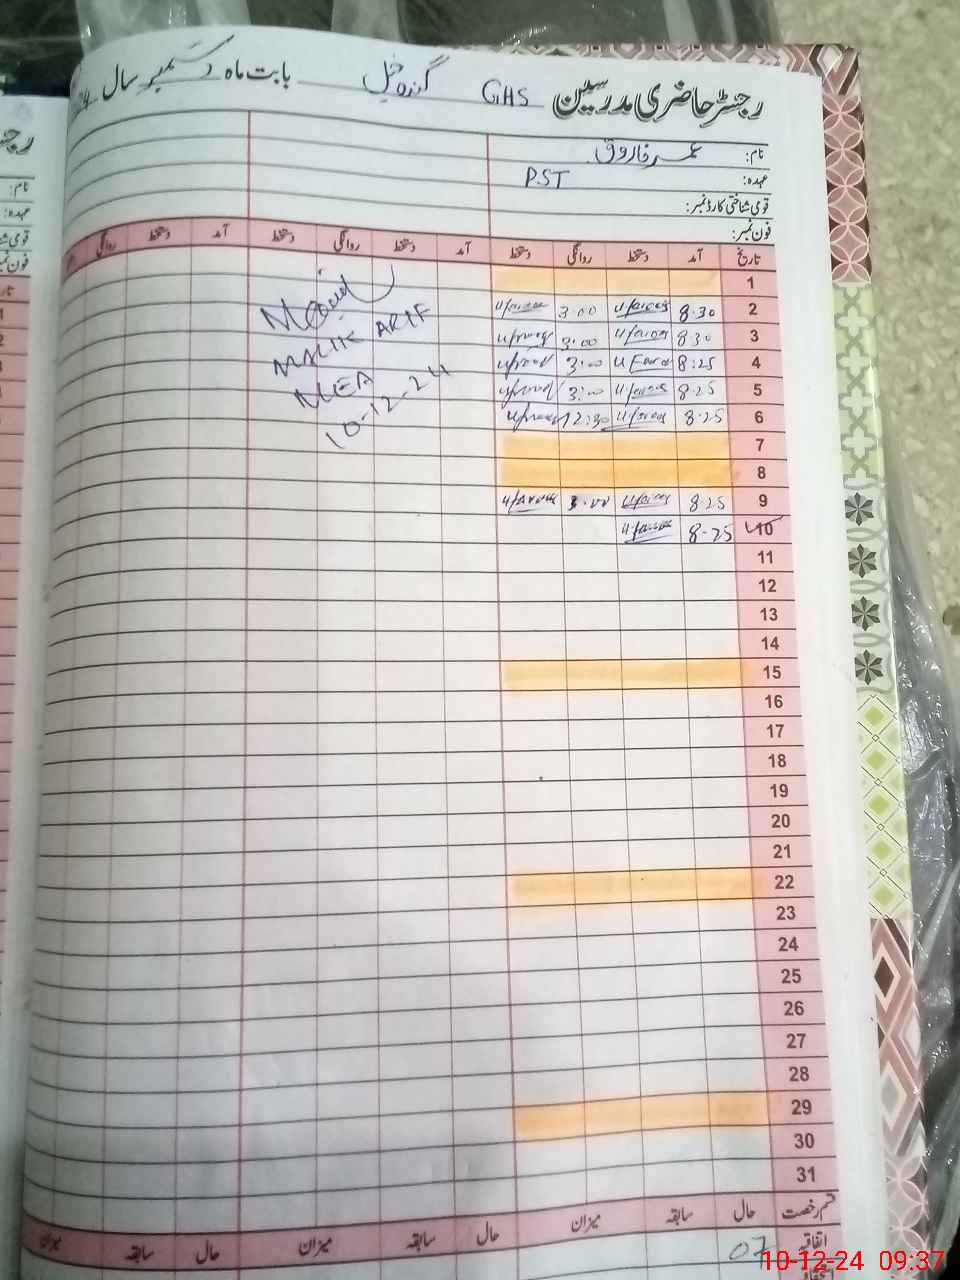 رجسٹر حاضری مدرسین GHS گنڈہ خیل بابت ماہ دسمبر سال
نام: عمر فاروق
عہدہ: PST
قومی شناختی کارڈ نمبر:
فون نمبر:
تاریخ آمد دستخط روانگی دستخط آمد دستخط روانگی دستخط آمد دستخط روانگی
1
2 8.30 3.00
3 8.30 3:00
4 8:25 3:00
5 8.25 3:00
6 8.25 12:30
7
8
9 8.25 3.00
10 8.25
MALIK ARIF
MEA
10-12-24
11
12
13
14
15
16
17
18
19
20
21
22
23
24
25
26
27
28
29
30
31
قسم رخصت حال سابقہ میزان حال سابقہ میزان حال سابقہ میزان
اتفاقیہ 07
10-12-24 09:37